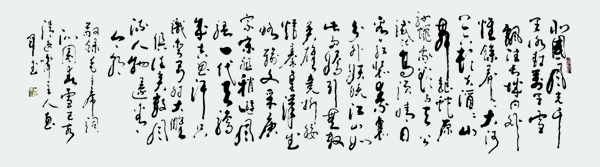 北國風光千
里冰封萬里雪
飄望長城內外
惟餘莽莽大河
上下頓失滔滔山
舞銀蛇原
馳蠟象欲與天公
試比高須晴日
看紅裝素裹
分外妖嬈江山如
此多嬌引無數
英雄競折腰
惜秦皇漢武
略輸文采唐
宗宋祖稍遜風
騷一代天驕
成吉思汗只
識彎弓射大雕
俱往矣數風
流人物還看
今朝
敬錄毛主席詞
沁園春雪